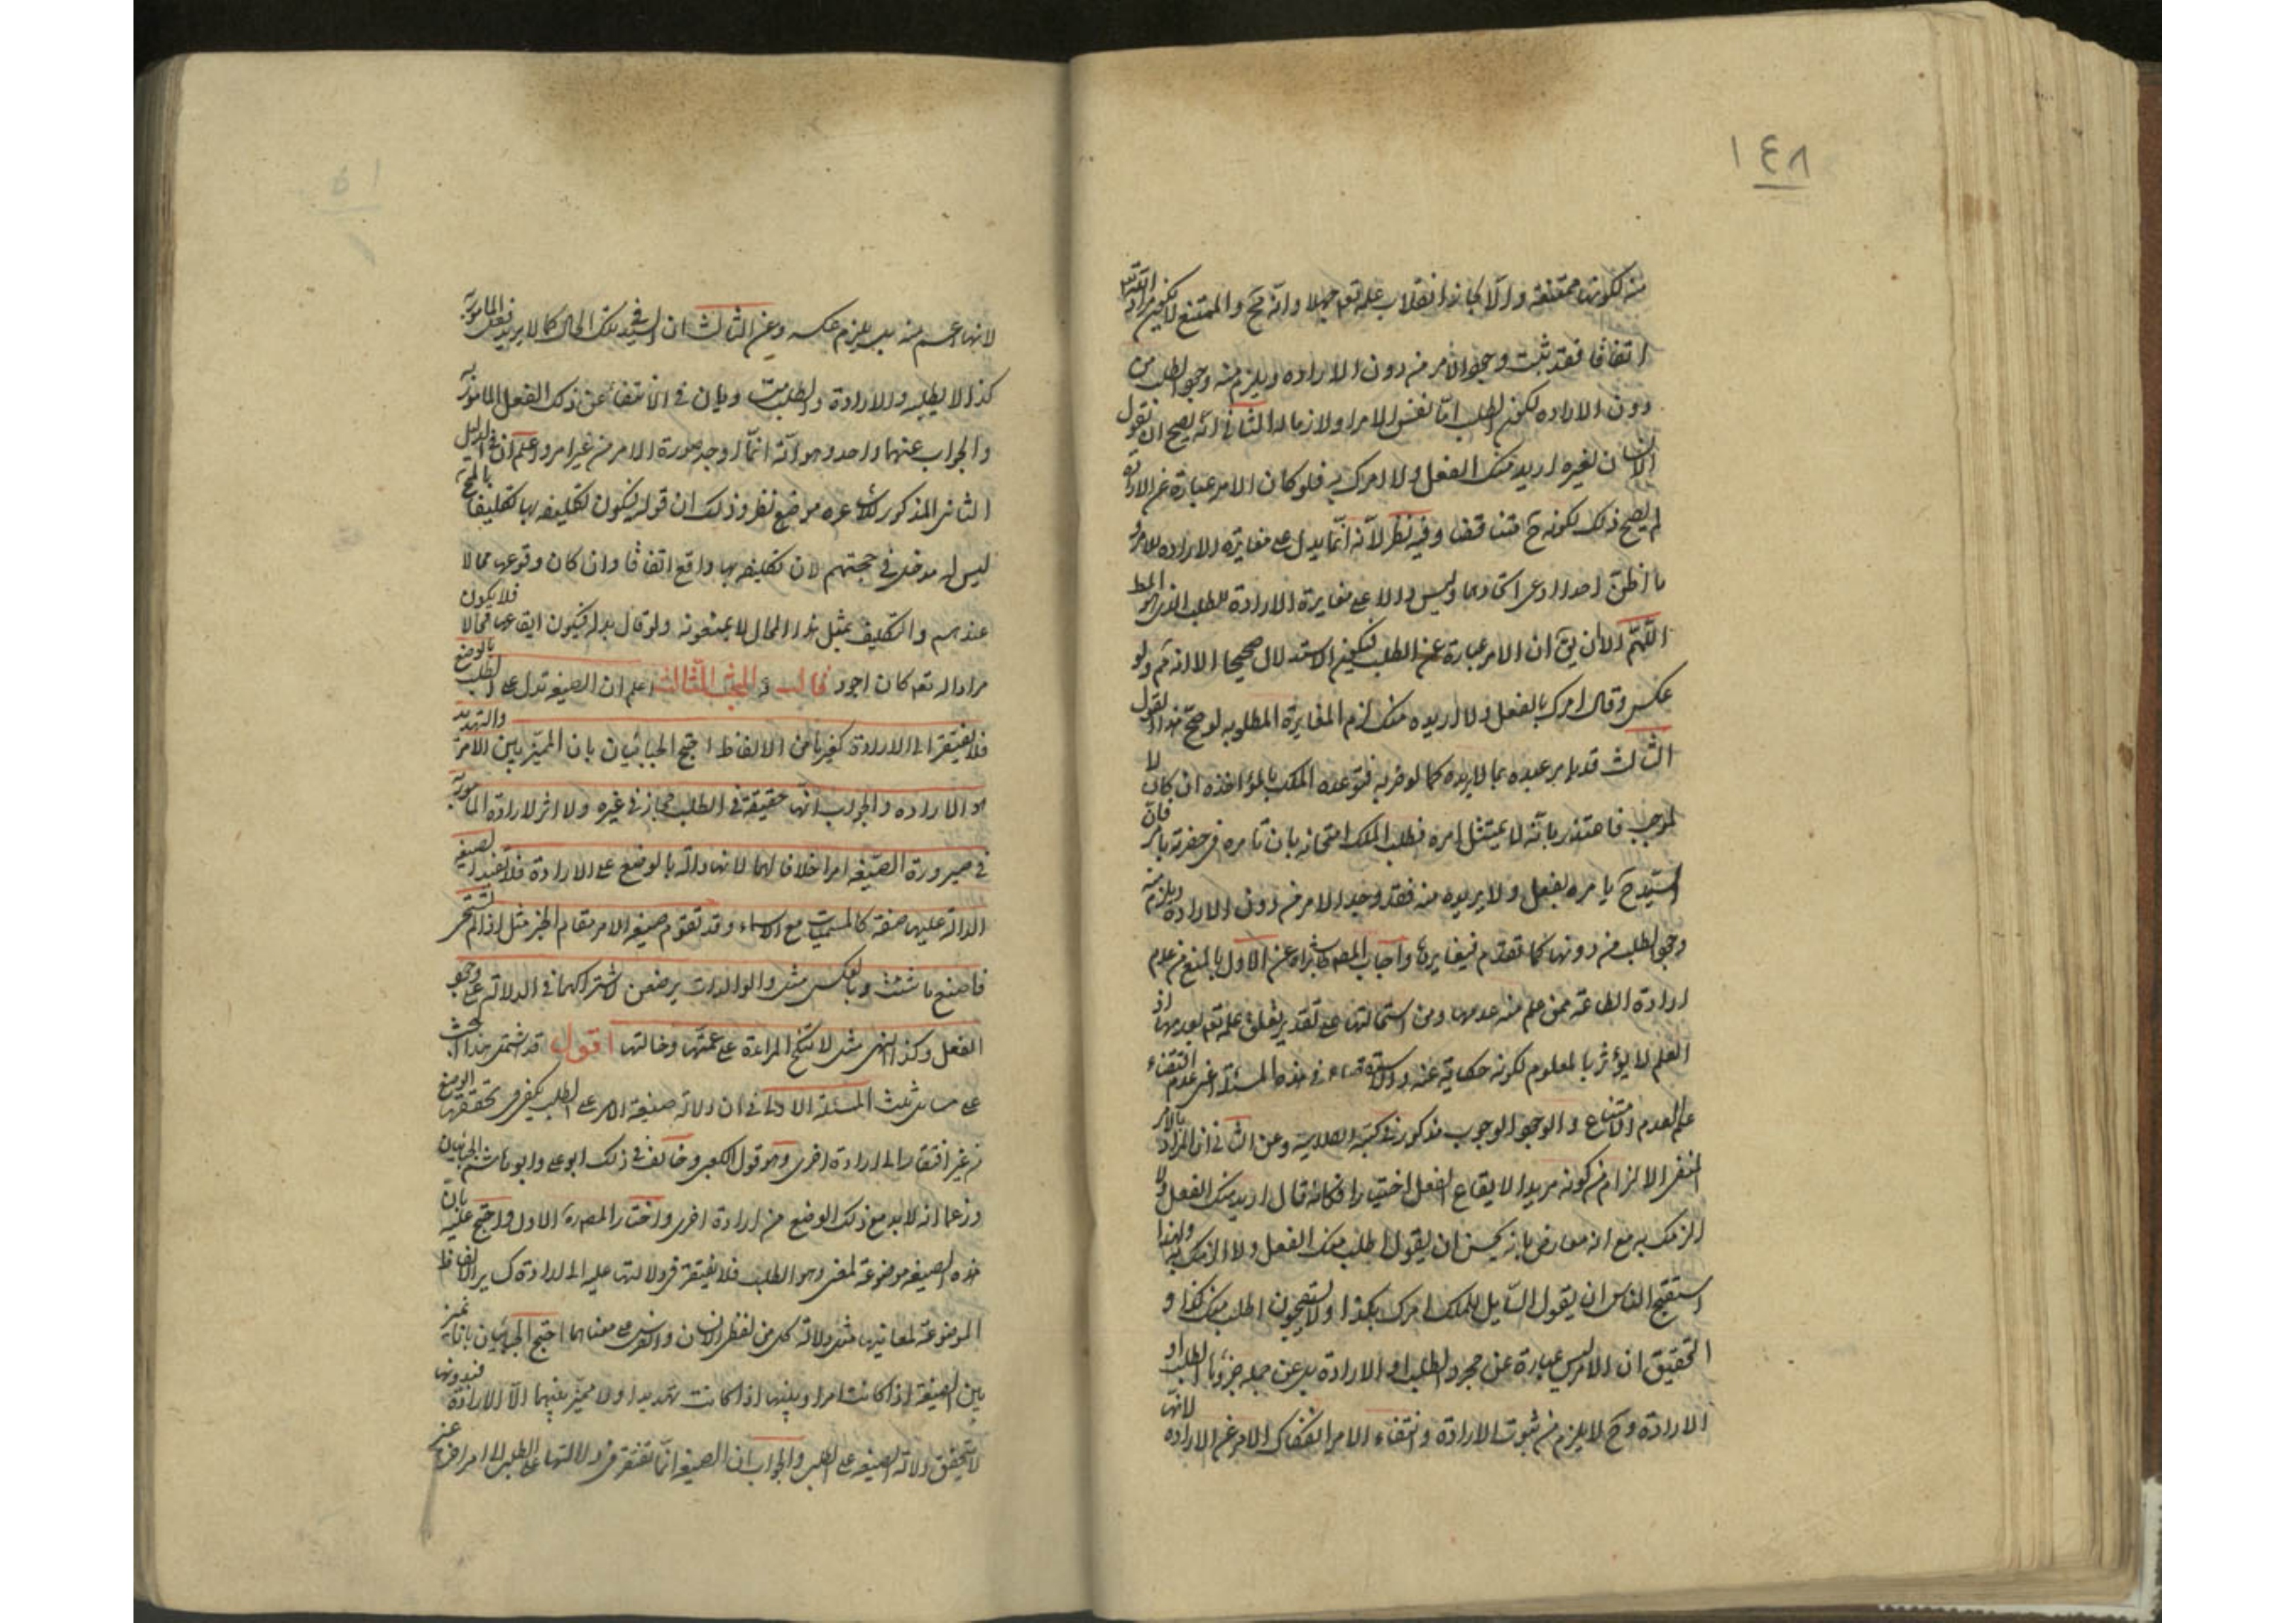 ١٤٨
منه لكونها ممتنعة والا لجاز انقلاب علمه تعه جهلا وانه مح والممتنع لا يكون مراد الله تعه
اتفاقا فقد ثبت وجود الامر من دون الارادة ويلزم منه وجود الطلب من
دون الارادة لكون الطلب اما نفس الامر او لازما له الثاني انه يصح ان يقول
الانسان لغيره اريد منك الفعل ولا امرك به فلو كان الامر عبارة عن الارادة
لم يصح ذلك لكونه ح متناقضا وفيه نظر لانه انما يدل على مغايرة الارادة للامر و
ما اظن احدا ادعى اتحادهما وليس دالا على مغايرة الارادة للطلب الذي هو المط
اللهم الا ان يق ان الامر عبارة عن الطلب فيكون الاستدلال صحيحا الا انه مم ولو
عكس وقال امرك بالفعل ولا اريده منك لزم المغايرة المطلوبه لو صح هذا القول
الثالث قد يامر عبده بما لا يريده كما لو ضربه فتوعده الملك بالمؤاخذه ان كان لا
لموجب فاعتذر بانه لا يمتثل امره فطلب الملك امتحانه بان تامره في حضرته بامر فان
السيد ح يامره بفعل ولا يريده منه فقد وجد الامر من دون الارادة ويلزم منه
وجود الطلب من دونها كما تقدم فيغايرها واجاب المصه طاب ثراه عن الاول بالمنع من عدم
ارادة الطاعة ممن علم منه عدمها ومن استحالتها على تقدير تعلق علمه تعه بعدمها اذ
العلم لا يؤثر بالمعلوم لكونه حكاية عنه والاستقصاء في هذه المسئلة اعني عدم اقتضاء
علم العدم الامتناع والوجود الوجوب مذكور في كتبه الكلامية وعن الثاني ان المراد بالامر
المنفي الالزام من كونه مريدا لايقاع الفعل اختيارا فكانه قال اريد منك الفعل ولا
الزمك به مع انه معارض بانه يحسن ان يقول اطلب منك الفعل ولا الزمك به ولهذا
استقبح الناس ان يقول السايل للملك امرك بكذا ولا يستقبحون اطلب منك كذا و
التحقيق ان الامر ليس عبارة عن مجرد الطلب او الارادة بل عن جملة جزؤها الطلب او
الارادة وح لا يلزم من ثبوت الارادة وانتفاء الامر انفكاك الامر عن الارادة لانها
لانها اعم منه بل يلزم عكسه وعن الثالث ان السيد في تلك الحال كما لا يريد فعل المامور به
كذا لا يطلبه والارادة والطلب متساويان في الانتفاء عن ذلك الفعل المامور به
والجواب عنهما واحد وهو انه انما اوجد صورة الامر من غير امر واعلم ان في الدليل
الثاني المذكور للاشاعره موضع نظر وذلك ان قوله فيكون تكليفه بها تكليفا بالمح
ليس له مدخل في حجتهم لان تكليفه بها واقع اتفاقا وان كان وقوعها محالا
عندهم والتكليف بمثل هذا المحال لا يمنعونه ولو قال بدله فيكون ايقاعها محالا فلا يكون
مرادا له تعه كان اجود قال قه المبحث الثالث اعلم ان الصيغة تدل على الطلب بالوضع
فلا يفتقر الى الارادة كغيرها من الالفاظ احتج الجبائيان بان المميز بين الامر والتهديد
هو الارادة والجواب انها حقيقة في الطلب مجاز في غيره ولا اثر لارادة المامور به
في صيرورة الصيغة امرا خلافا لهما لانها دالة بالوضع على الارادة فلا تفيد الصيغة
الدالة عليها صفة كالمسميات مع الاسماء وقد تقوم صيغة الامر مقام الخبر مثل اذا لم تستحي
فاصنع ما شئت وبالعكس مثل والوالدات يرضعن لاشتراكهما في الدلالة على وجود
الفعل وكذا النهي مثل لا تنكح المراءة على عمتها وخالتها اقول قد اشتمل هذا البحث
على مسائل ثلث المسئلة الاولى في ان دلالة صيغة الامر على الطلب يكفي في تحققها الوضع
من غير افتقار الى ارادة اخرى وهو قول الكعبي وخالف في ذلك ابو علي وابو هاشم الجبائيان
وزعما انه لا بد مع ذلك الوضع من ارادة اخرى واختار المصه ره الاول واحتج عليه بان
هذه الصيغة موضوعة لمعنى وهو الطلب فلا يفتقر في دلالتها عليه الى ارادة كساير الالفاظ
الموضوعة لمعانيها مثل دلالة كل من لفظ الانسان والفرس على معناهما احتج الجبائيان بانا نميز
بين الصيغة اذا كانت امرا وبينها اذا كانت تهديدا ولا مميز بينهما الا الارادة فبدونها
لا يتحقق دلالة الصيغة على الطلب والجواب ان الصيغة انما تفتقر في دلالتها على الطلب الى امر اخر غير